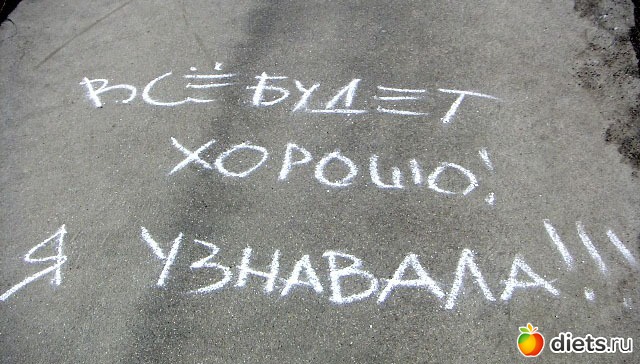 ВСЁ БУДЕТ
ХОРОШО!
Я УЗНАВАЛА!!!
diets.ru